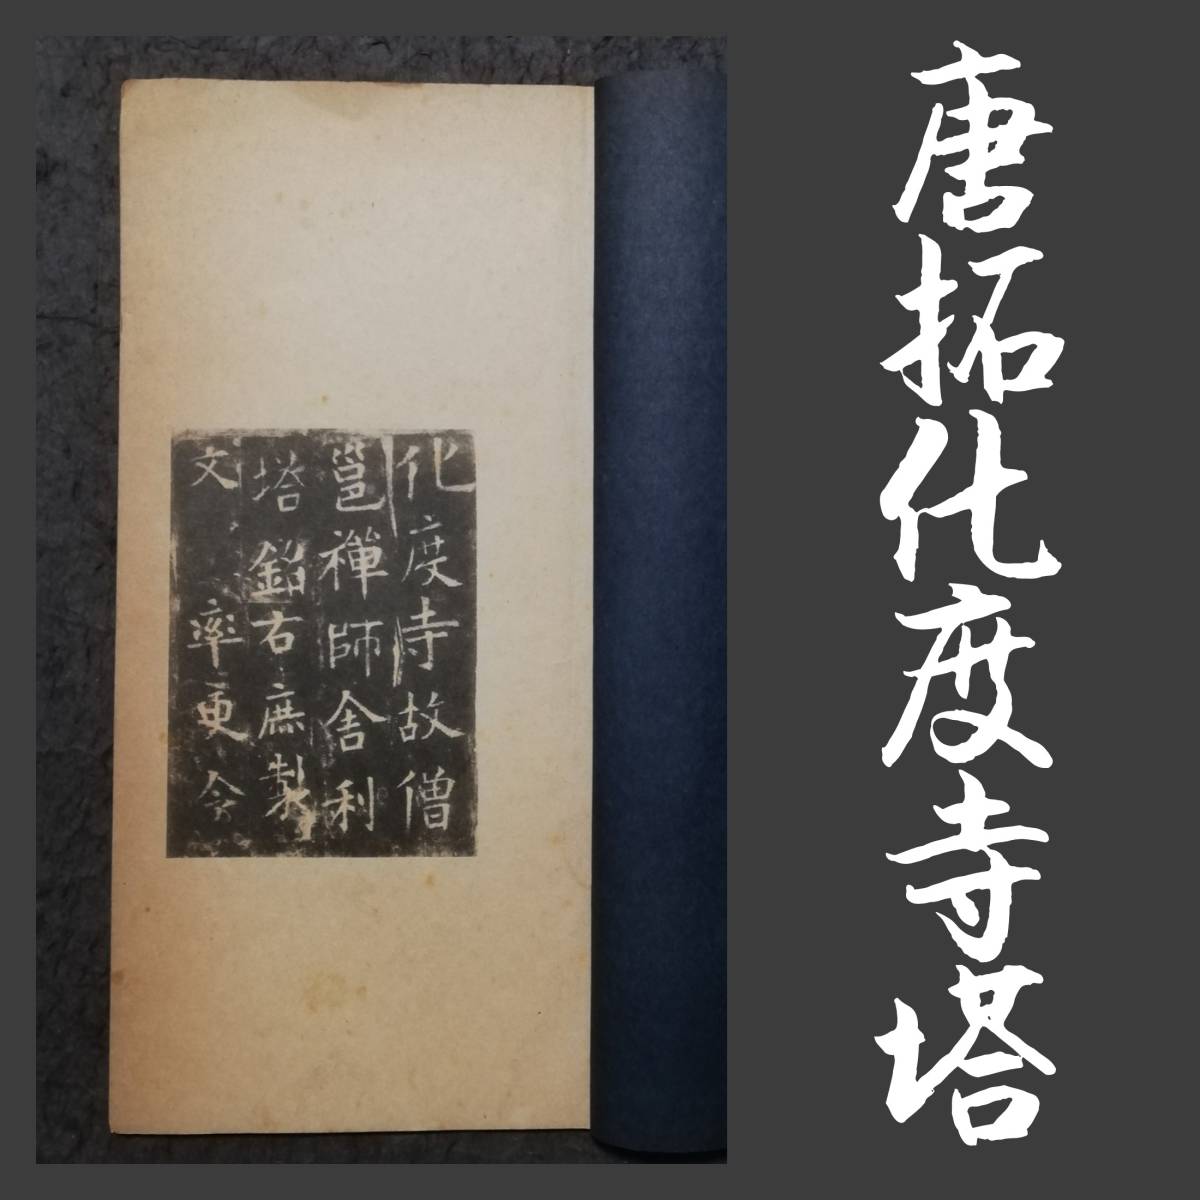 唐拓化度寺塔
化度寺故僧
邕禪師舍利
塔銘右庶製
文　率更令